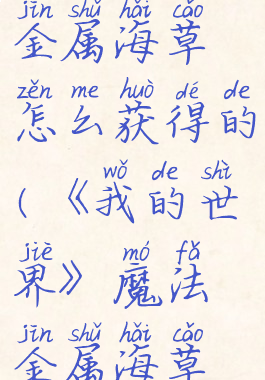 jīn shǔ hǎi cǎo
金属海草
zěn me huò dé de
怎么获得的
wǒ de shì
(《我的世
jiè mó fǎ
界》魔法
jīn shǔ hǎi cǎo
金属海草